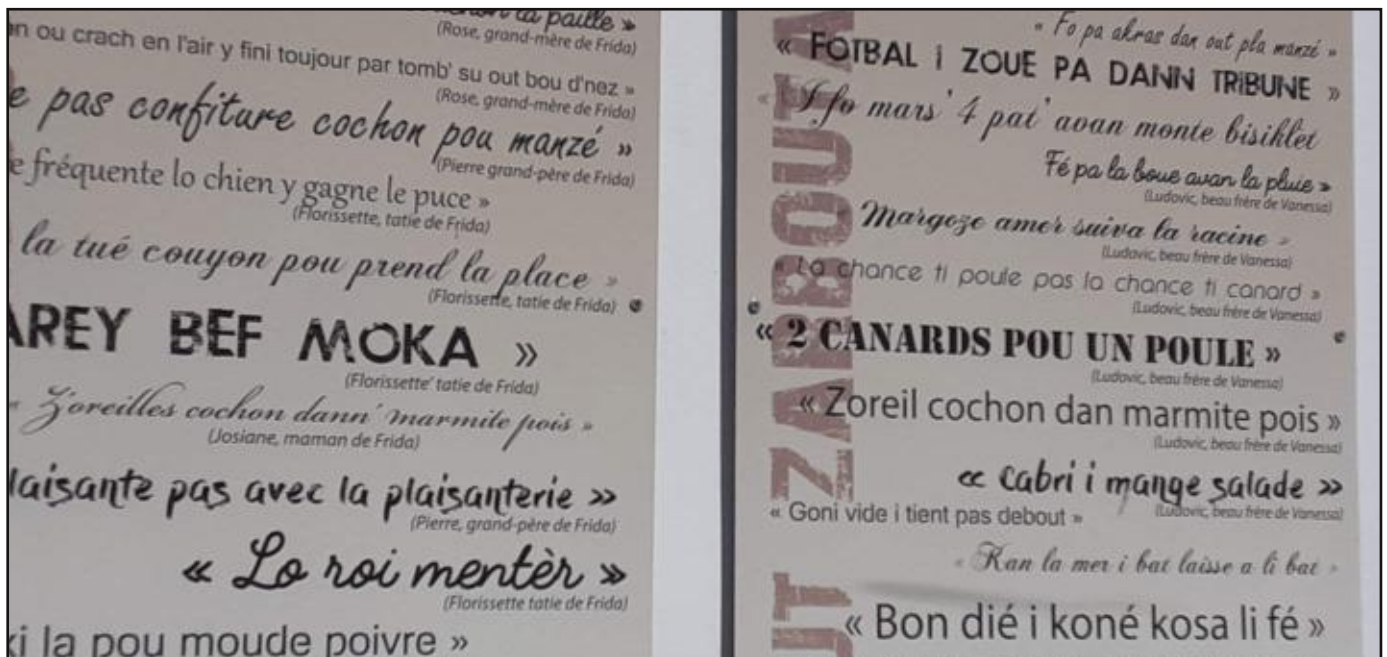 la paille »
(Rose, grand-mère de Frida)
ou crach en l'air y fini toujour par tomb' su out bou d'nez »
(Rose, grand-mère de Frida)
pas confiture cochon pou manzé »
(Pierre grand-père de Frida)
fréquente lo chien y gagne le puce »
(Florissette, tatie de Frida)
la tué couyon pou prend la place »
(Florissette, tatie de Frida)
AREY BEF MOKA »
(Florissette' tatie de Frida)
« Z'oreilles cochon dann' marmite pois »
(Josiane, maman de Frida)
laisante pas avec la plaisanterie »
(Pierre, grand-père de Frida)
« Lo roi mentèr »
(Florissette tatie de Frida)
ki la pou moude poivre »
« Fo pa akras dan out pla manzé »
« FOTBAL i ZOUE PA DANN TRIBUNE »
« I fo mars' 4 pat' avan monte bisiklet
Fé pa la boue avan la pluie »
(Ludovic, beau frère de Vanessa)
Margoze amer suiva la racine »
(Ludovic, beau frère de Vanessa)
« La chance ti poule pas la chance ti canard »
(Ludovic, beau frère de Vanessa)
« 2 CANARDS POU UN POULE »
(Ludovic, beau frère de Vanessa)
« Zoreil cochon dan marmite pois »
(Ludovic, beau frère de Vanessa)
« Cabri i mange salade »
(Ludovic, beau frère de Vanessa)
« Goni vide i tient pas debout »
« Kan la mer i bat laisse a li bat »
« Bon dié i koné kosa li fé »
ZABOUTA
UT